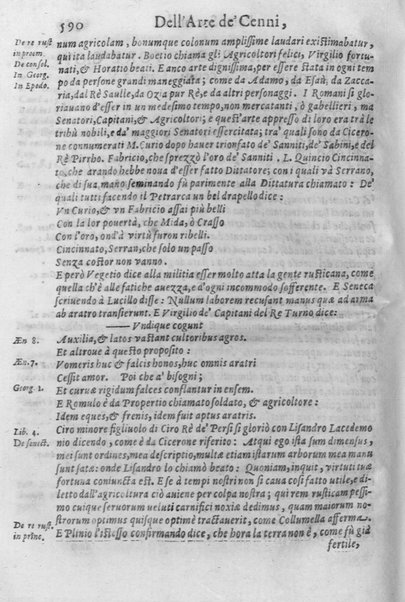 590 Dell'Arte de' Cenni,
De re rust in proem. num agricolam, bonumque colonum amplissime laudari existimabatur,
De consol. qui ita laudabatur. Boetio chiama gli Agricoltori felici, Virgilio fortu-
In Georg. nati, & Horatio beati. E anco arte dignissima, per essere stata in ogni tem
In Epodo. po da persone grandi maneggiata; come da Adamo, da Esaù, da Zacca-
ria, dal Rè Saulle, da Ozia pur Rè, e da altri personaggi. I Romani si glo-
riauano d'esser in un medesimo tempo, non mercatanti, ò gabellieri, ma
Senatori, Capitani, & Agricoltori; e quest'arte appresso di loro era trà le
tribù nobili, e da' maggiori Senatori essercitata; tra' quali sono da Cicero-
ne connumerati M. Curio dopo hauer trionfato de' Sanniti, de' Sabini, e del
Rè Pirrho. Fabricio, che sprezzò l'oro de' Sanniti. L. Quincio Cincinna-
to, che arando hebbe noua d'esser fatto Dittatore; con i quali và Serrano,
che di sua mano seminando fù parimente alla Dittatura chiamato: De'
quali tutti facendo il Petrarca un bel drapello dice:
Vn Curio, & vn Fabricio assai più belli
Con la lor pouertà, che Mida, ò Crasso
Con l'oro, ond'à virtù furon ribelli.
Cincinnato, Serran, che solo un passo
Senza costor non vanno.
E però Vegetio dice alla militia esser molto atta la gente rusticana, come
quella ch'è alle fatiche auezza, e d'ogni incommodo sofferente. E Seneca
scriuendo à Lucillo disse: Nullum laborem recusant manus quæ ad arma
ab aratro transferunt. E Virgilio de' Capitani del Re Turno dice:
—— Vndique cogunt
Æn 8. Auxilia, & latos vastant cultoribus agros.
Et altroue à questo proposito:
Æn. 7. Vomeris huc & falcis honos, huc omnis aratri
Cessit amor. Poi che a' bisogni;
Georg 1. Et curuæ rigidum falces conflantur in ensem.
E Romulo è da Propertio chiamato soldato, & agricoltore:
Idem eques, & frenis, idem fuit aptus aratris.
Lib. 4. Ciro minore figliuolo di Ciro Rè de' Persi si gloriò con Lisandro Lacedemo
De senect. nio dicendo, come è da Cicerone riferito: Atqui ego ista sum dimensus,
mei sunt ordines, mea descriptio, multæ etiam istarum arborum mea manu
sunt satæ: onde Lisandro lo chiamò beato: Quoniam, inquit, virtuti tuæ
fortuna coniuncta est. E se à tempi nostri non si caua così fatto utile, e di-
letto dall'agricoltura ciò aniene per colpa nostra; qui rem rusticam pessi-
mo cuique seruorum ueluti carnifici noxiæ dedimus, quam maiorum no-
De re rust. in princ. strorum optimus quisque optimè tractauerit, come Collumella afferma.
E Plinio l'istesso confirmando dice, che hora la terra non è, come fù già
fertile,